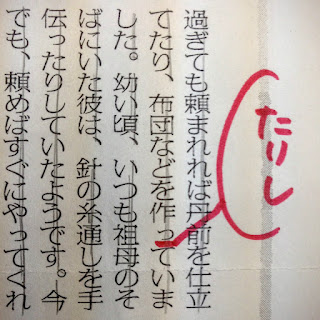 過ぎても頼まれれば丹前を仕立
てたり、布団などを作っていま
した。幼い頃、いつも祖母のそ
ばにいた彼は、針の糸通しを手
伝ったりしていたようです。今
でも、頼めばすぐにやってくれ
たりし